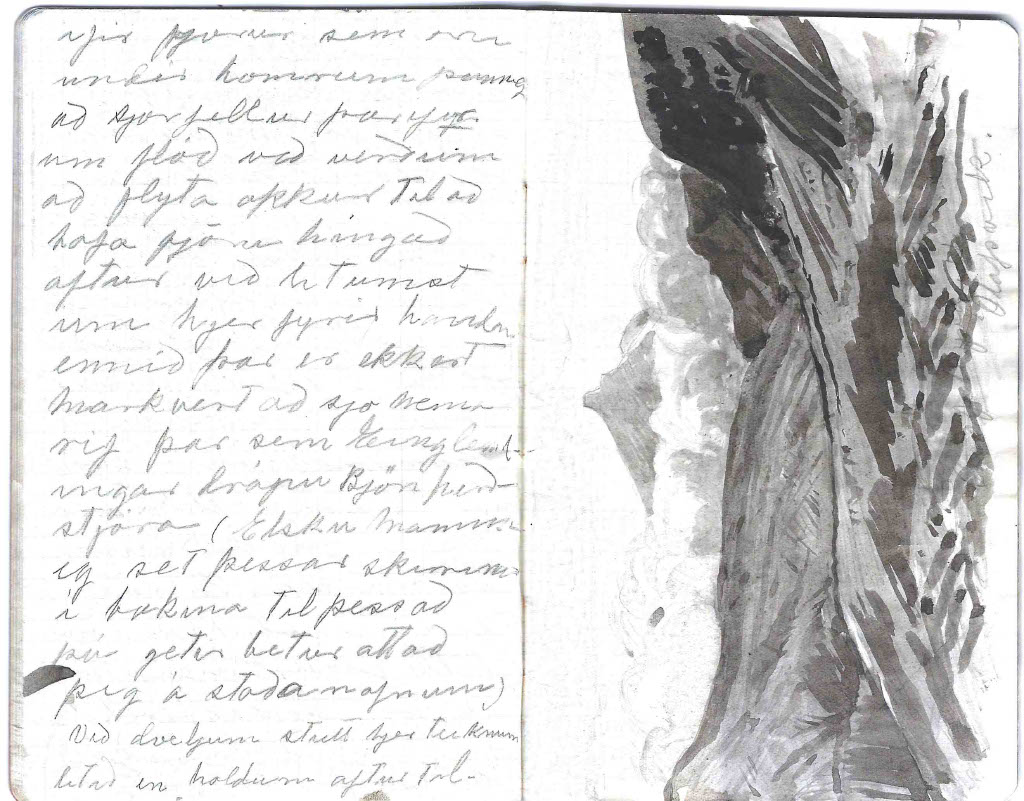 ifir fjörur sem eru
undir homrum þannig
að sjor fellur par ifir
um flóð við verðum
að flyta okkur til að
hafa fjöru hingað
aftur við litumst
um hjer fyrir handan
ennið þar er ekkert
markvert að sjo nema
rif þar sem Einglend-
ingar drápu Björn hirð
stjóra (Elsku mamma
ig set þessar skiringar
i bokina til þess að
þú getir betur áttað
þig á staðanofnum)
Við dveljum stutt hjer teiknum
litið en holdum aftur til-